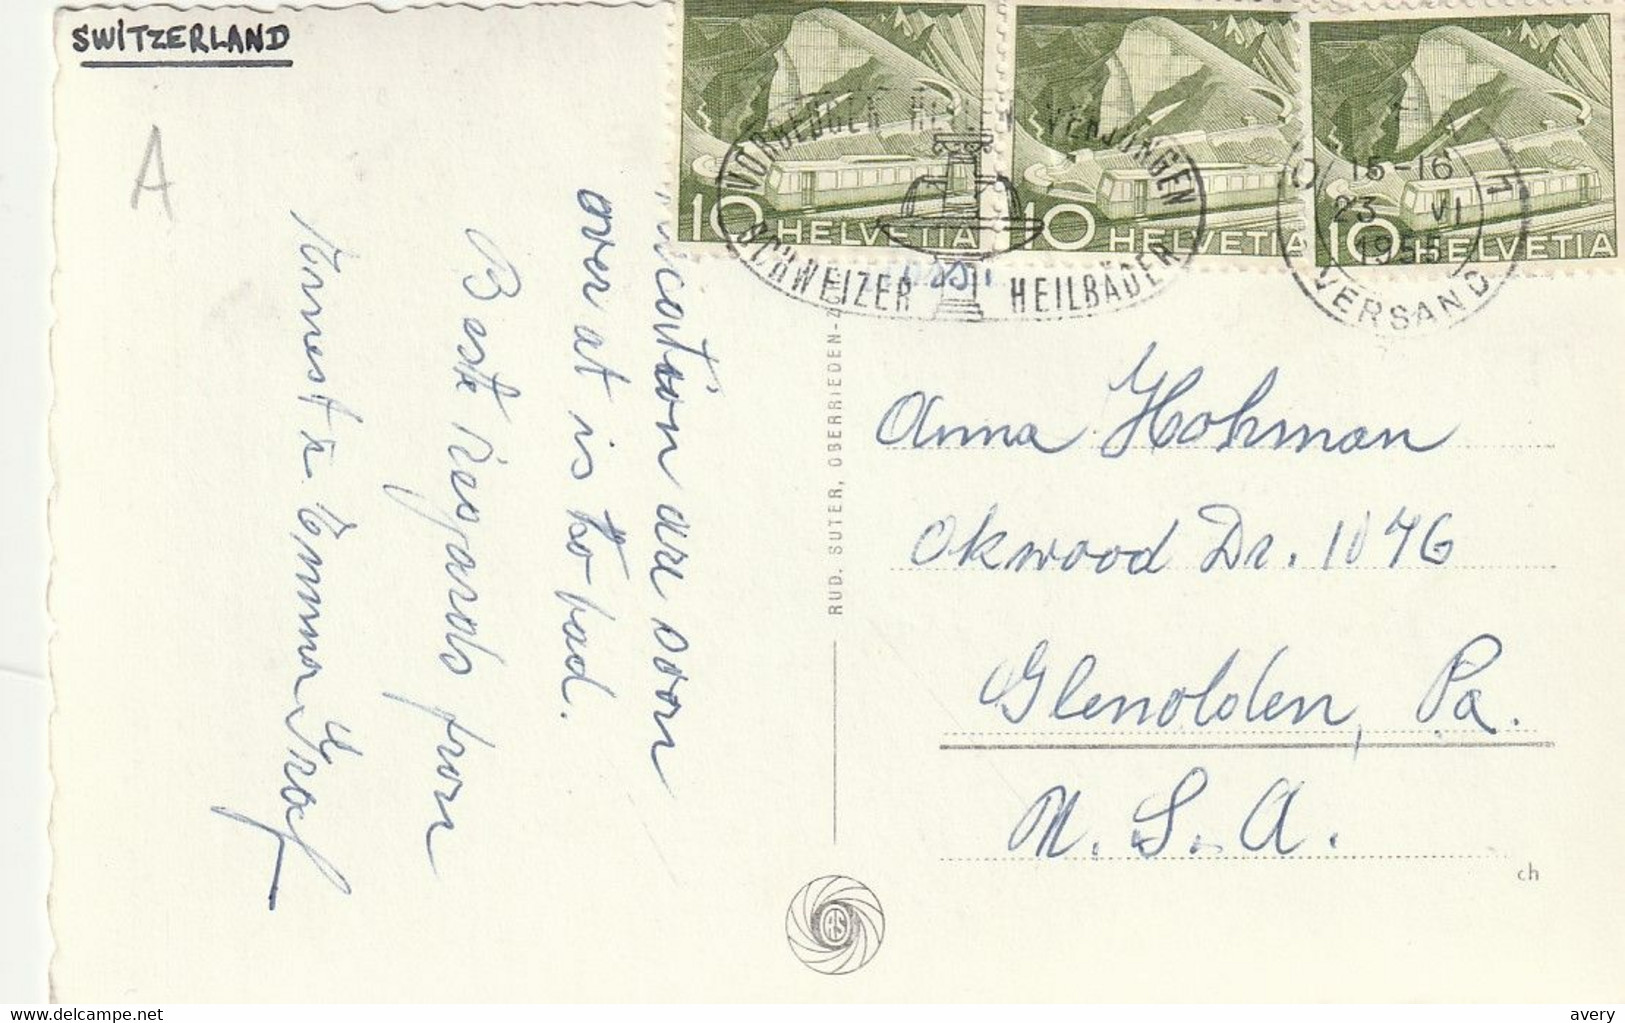 SWITZERLAND
A
over at is to bad.
Best Regards from
Ernest & Emma Graf
are soon
10 HELVETIA
10 HELVETIA
10 HELVETIA
VORBEUGEN HEILEN VERJÜNGEN
SCHWEIZER HEILBÄDER
15-16
23 VI
1955
VERSAND
RUD. SUTER, OBERRIEDEN-
Anna Hohman
Okwood Dr. 1046
Glenolden, Pa.
U. S. A.
ch
RS
Uploaded by: avery